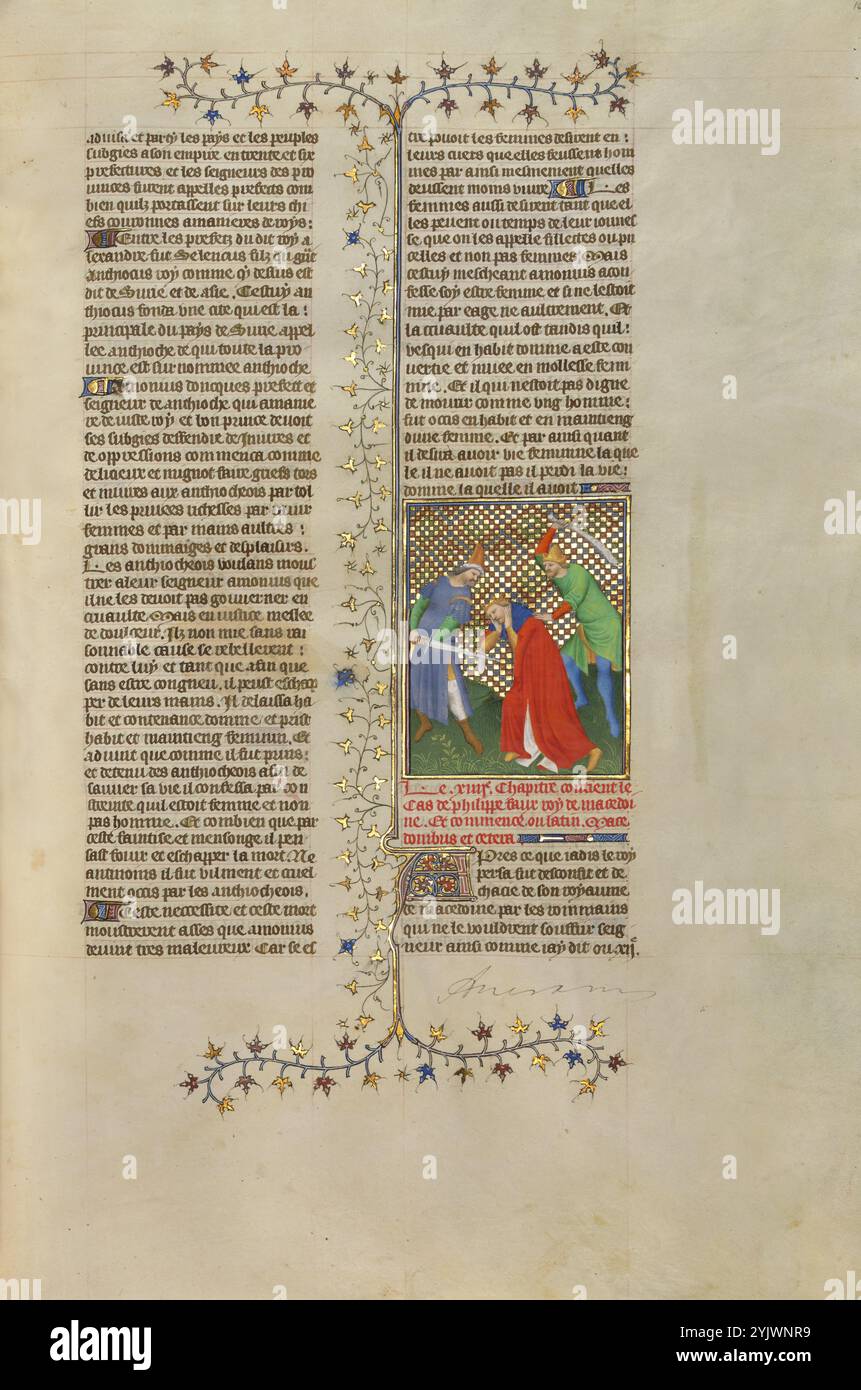 aduisa et party les pays et les peuples
subgies a son empire en trente et six
prefectures et les seigneurs des pro
uinces furent appelles prefects com
bien quilz portassent sur leurs chi
efs couronnes a manieres de roys:
Entre les prefetz du dit roy a
lexandre fut Seleucus filz du
Anthiocus roy comme cy dessus est
dit de Surie et de asie. Cestuy an
thiocus fonda vne cite qui est la:
principale du pays de Surie appel
lee anthioche de qui toute la pro
uince est surnommee anthioche
doncques prefect et
seigneur de anthioche qui a manie
re de iuste roy et bon prince deuoit
ses subgies deffendre de Iniures et
de oppressions commenca comme
delicieux et mignot faire griefs tors
et iniures aux anthiocheois par tol
lir les priuees richesses par rauir
femmes et par mains aultres:
grans dommaiges et desplaisirs.
Les anthiocheois voulans mous
trer a leur seigneur amonius que
il ne les deuoit pas gouuerner en
cruaulte Mais en iustice meslee
de doulceur. Ilz non mie sans rai
sonnable cause se rebellerent:
contre luy et tant que afin que
sans estre congneu. il peust eschap
per de leurs mains. Il delaissa ha
bit et contenance domme et prist
habit et maintieng feminin. Et
aduint que comme il fut prins:
et detenu des anthiocheois afin de
sauuer sa vie il confessa par con
trainte quil estoit femme et non
pas homme. Et combien que par
ceste faintise et mensonge il pen
sast fouir et eschapper la mort. Ne
antmoins il fut vilment et cruel
ment occis par les anthiocheois.
Ceste neccessite et ceste mort
moustrerent asses que amonius
deuint tres maleureux Car se es
tre pouoit les femmes desirent en:
leurs cuers que elles feussent hom
mes par ainsi mesmement quelles
deussent moins viure Les
femmes aussi desirent tant que el
les peuent ou temps de leur iounes
se que on les appelle fillectes ou pu
celles et non pas femmes Mais
cestuy mescheant amonius a con
fesse soy estre femme et si ne lestoit
mie par eage ne aultrement. Et
la cruaulte quil ost tandis quil:
vesqui en habit domme a este con
uertie et muee en mollesse femi
nine. Et il qui nestoit pas digne
de mourir comme vng homme:
fut occis en habit et en maintieng
dune femme. Et par ainsi quant
il desira auoir vie feminine la que
le il ne auoit pas il perdi la vie:
domme la quelle il auoit
Le .xiiii. Chapitre contient le
Cas de philippe faux roy de macedoi
ne. Et commence ou latin. Mace
donibus et cetera
Apres ce que iadis le roy
persa fut desconfit et de
chacie de son royaume
de macedoine par les rommains
qui ne le vouldrent souffrir seig
neur ainsi comme iay dit ou xii.
alamy
Image ID: 2YJWNR9
www.alamy.com